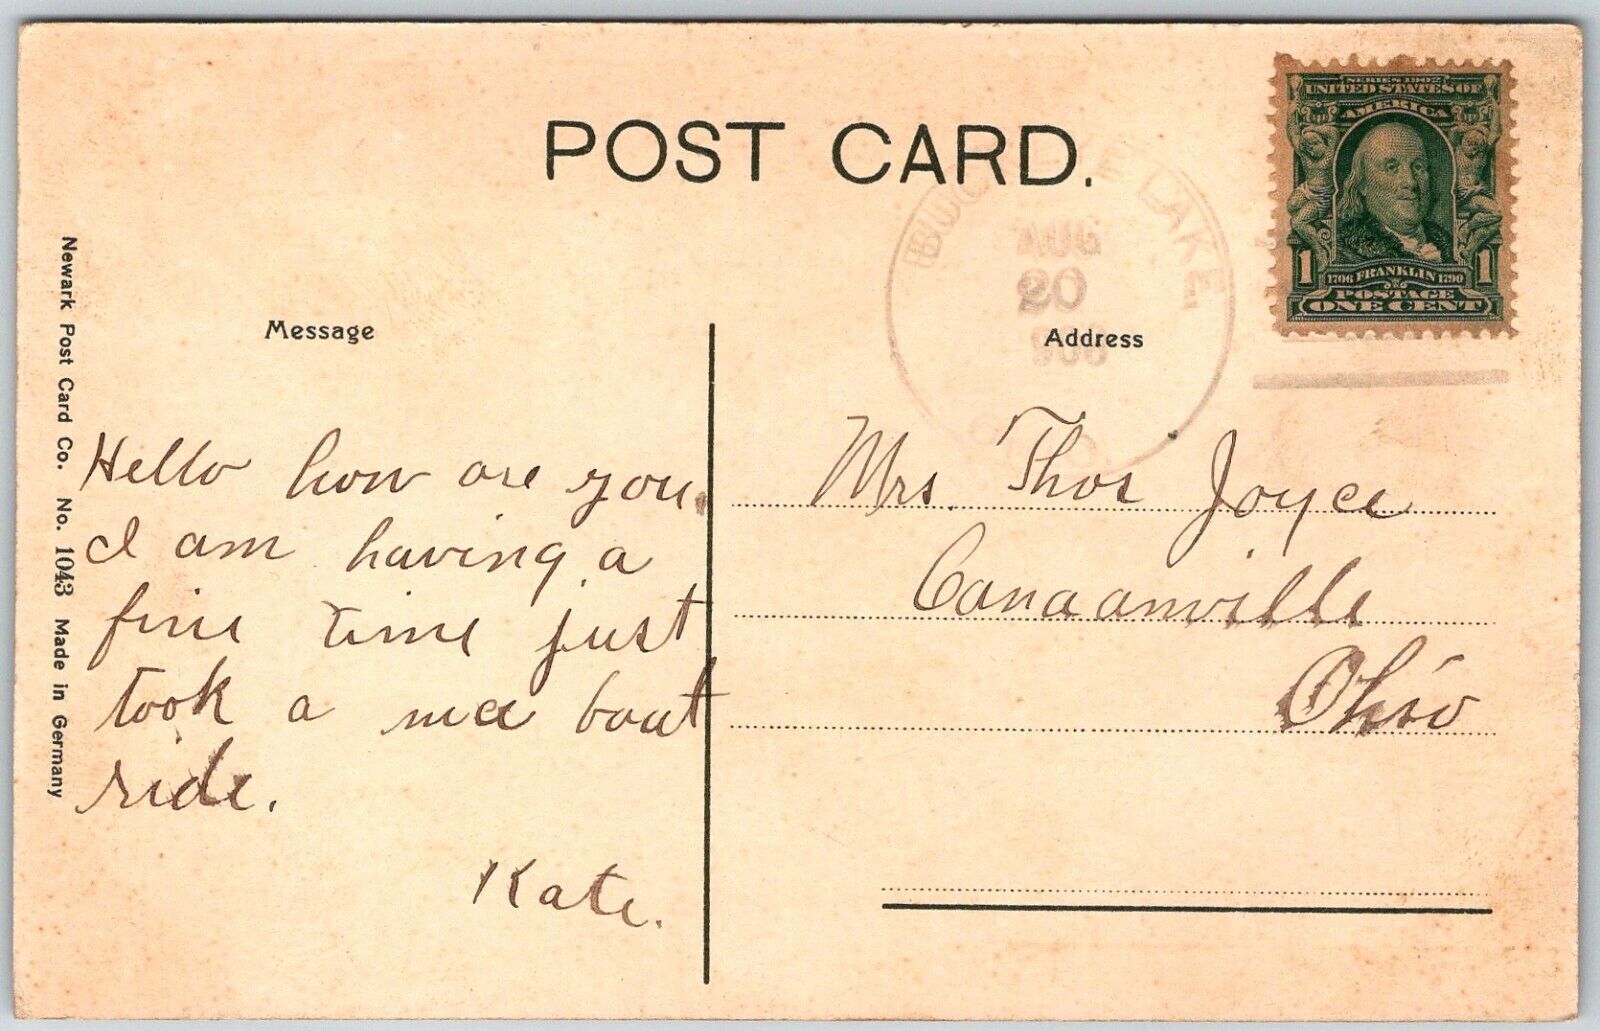 POST CARD.
SERIES 1902
UNITED STATES OF
AMERICA
1706 FRANKLIN 1790
1 1
POSTAGE
ONE CENT
LAKE,
AUG
20
Message
Address
Hello how are you
I am having a
fine time just
took a boat
ride.
Kate.
Mrs. Thos Joyce
Canaanville
Ohio
Newark Post Card Co. No. 1043 Made in Germany